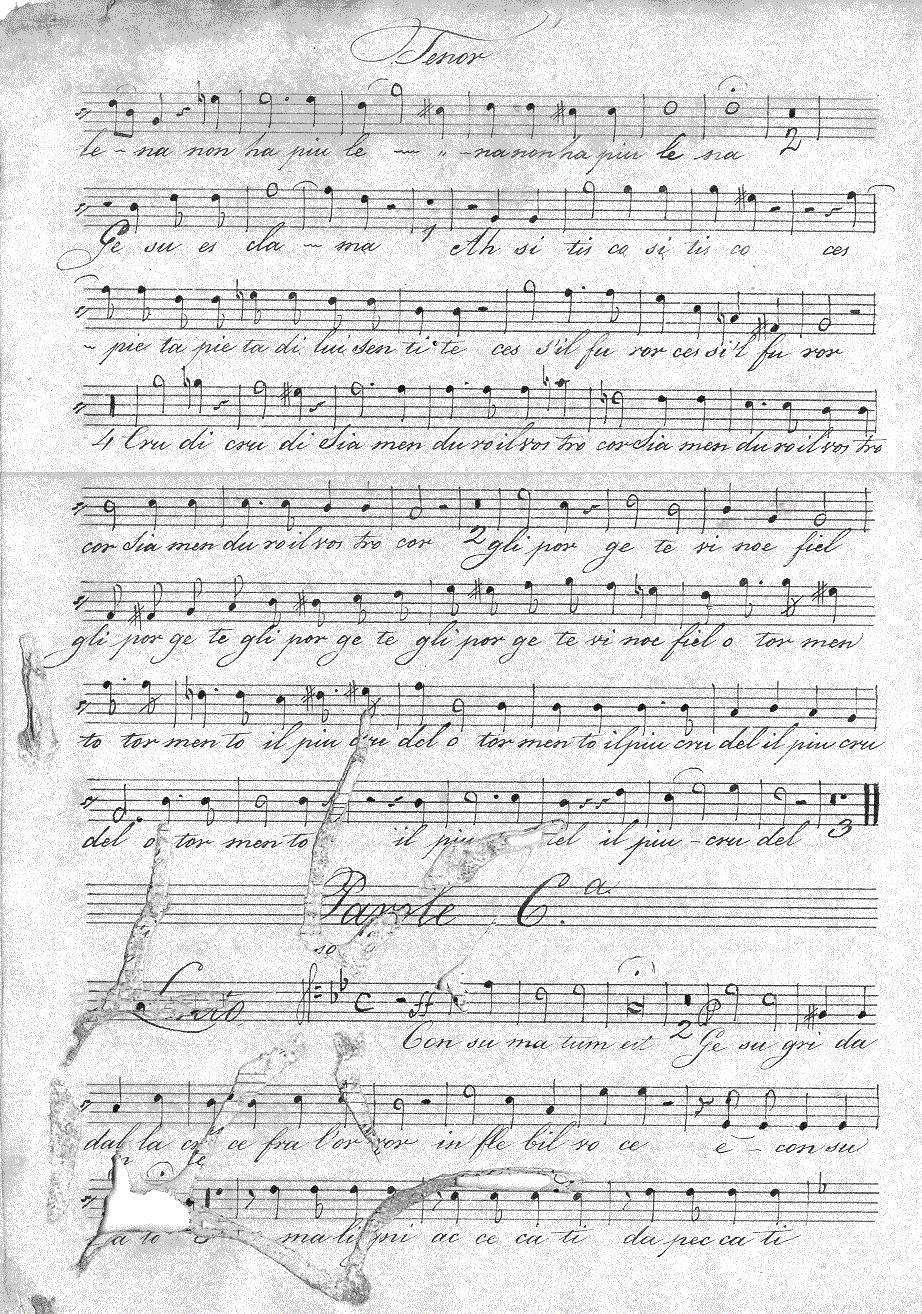 Tenor
le - na non ha piu le - " - na non ha piu le na
2
Ge su es cla - ma 1 Ah si tis co si tis co ces
- pie ta pie ta di lui sen ti te ces s'il fu ror ces si'l fu ror
4 Cru di cru di Sia men du ro il vos tro cor Sia men du ro il vos tro
cor Sia men du ro il vos tro cor 2 gli por ge te vi noe fiel
gli por ge te gli por ge te gli por ge te vi noe fiel o tor men
to tor men to il piu cru del o tor men to il piu cru del il piu cru
del o tor men to il piu del il piu - cru del 3
Parole 6.a
so
C ff
Con su ma tum est 2 Ge su gri da
dal la cro ce fra l'or ror in fle bil vo ce e - con su
ma li pri ac ce ca ti da pec ca ti